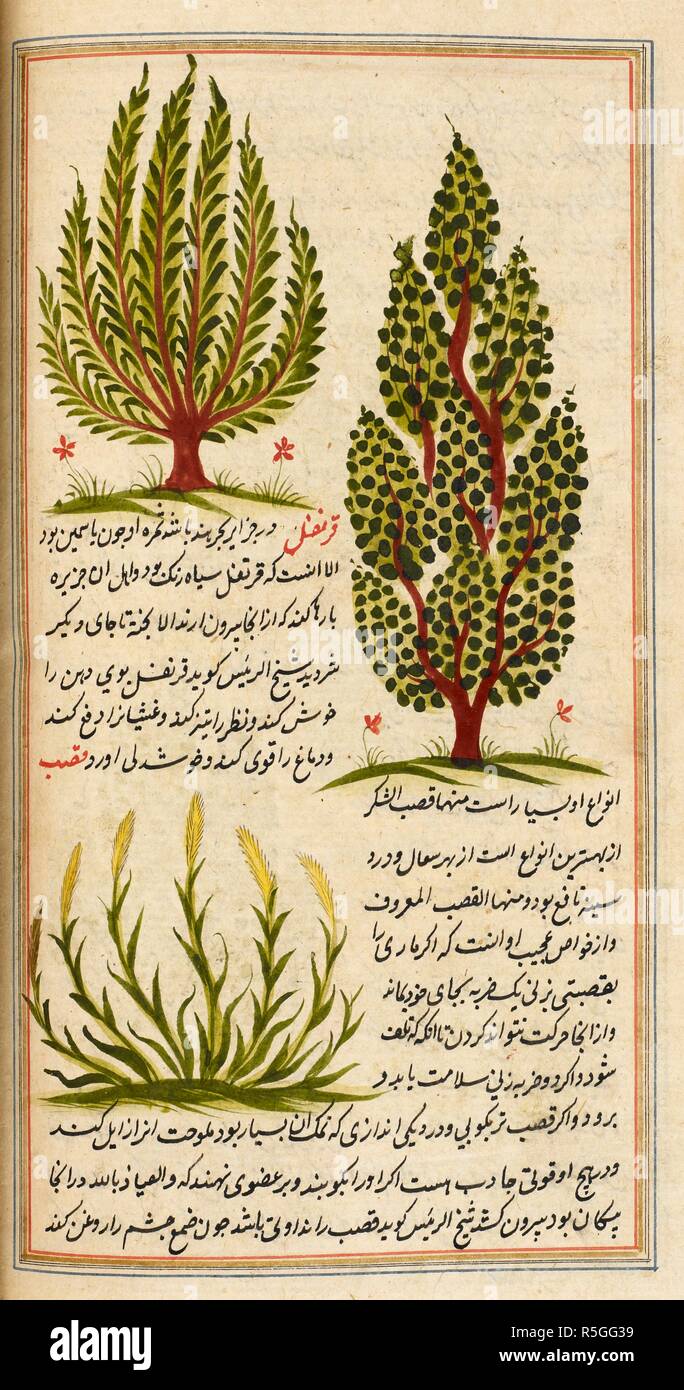 قرنفل در جزایر بحر هند باشد ثمره او چون یاسمین بود
الا انست که قرنفل سیاه رنک بود و اهل ان جزیره
بارها کنند که از انجا بیرون ارند الا تا جای دیکر
شیخ الرئیس کوید قرنفل بوی دهن را
خوش کند و نظر را تیز کند و غثیانرا دفع کند
و دماغ را قوی کند و خوشدلی اورد قصب
انواع او بسیار است منها قصب السکر
از بهترین انواع است از بهر سعال و درد
سینه نافع بود و منها القصب المعروف
و از خواص عجیب او انست که اکر ماری را
بقصبتی بزنی یک ضربه بجای خود بماند
و از انجا حرکت نتواند کردن تا انکه تلف
شود و اکر دو ضربه زنی سلامت یابد و
برود و اکر قصب تر بکوبی و در دیکی اندازی که نمک ان بسیار بود ملوحت انرا زایل کند
و در بیخ او قوتی جاذب هست اکر او را بکوبند و بر عضوی نهند که والعیاذ بالله در انجا
پیکان بود بیرون کشد شیخ الرئیس کوید قصب را باشد چون صمغ چشم را روشن کند
alamy
Image ID: R5GG39
www.alamy.com